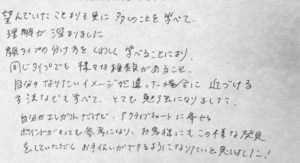 望んでいたことよりも更に多くのことを学べて、
理解が深まりました
顔タイプの分け方をくわしく学べることにより、
同じタイプでも様々な種類があること、
自分のなりたいイメージが違った場合に近づける
方法なども学べて、とても勉強になりました。
自分がエレガントだけど、アクティブキュートに寄せる
ポイントがとても参考になり、お客様にもこの様な発見
をしていただらお手伝いができるようになりたいと思いました!